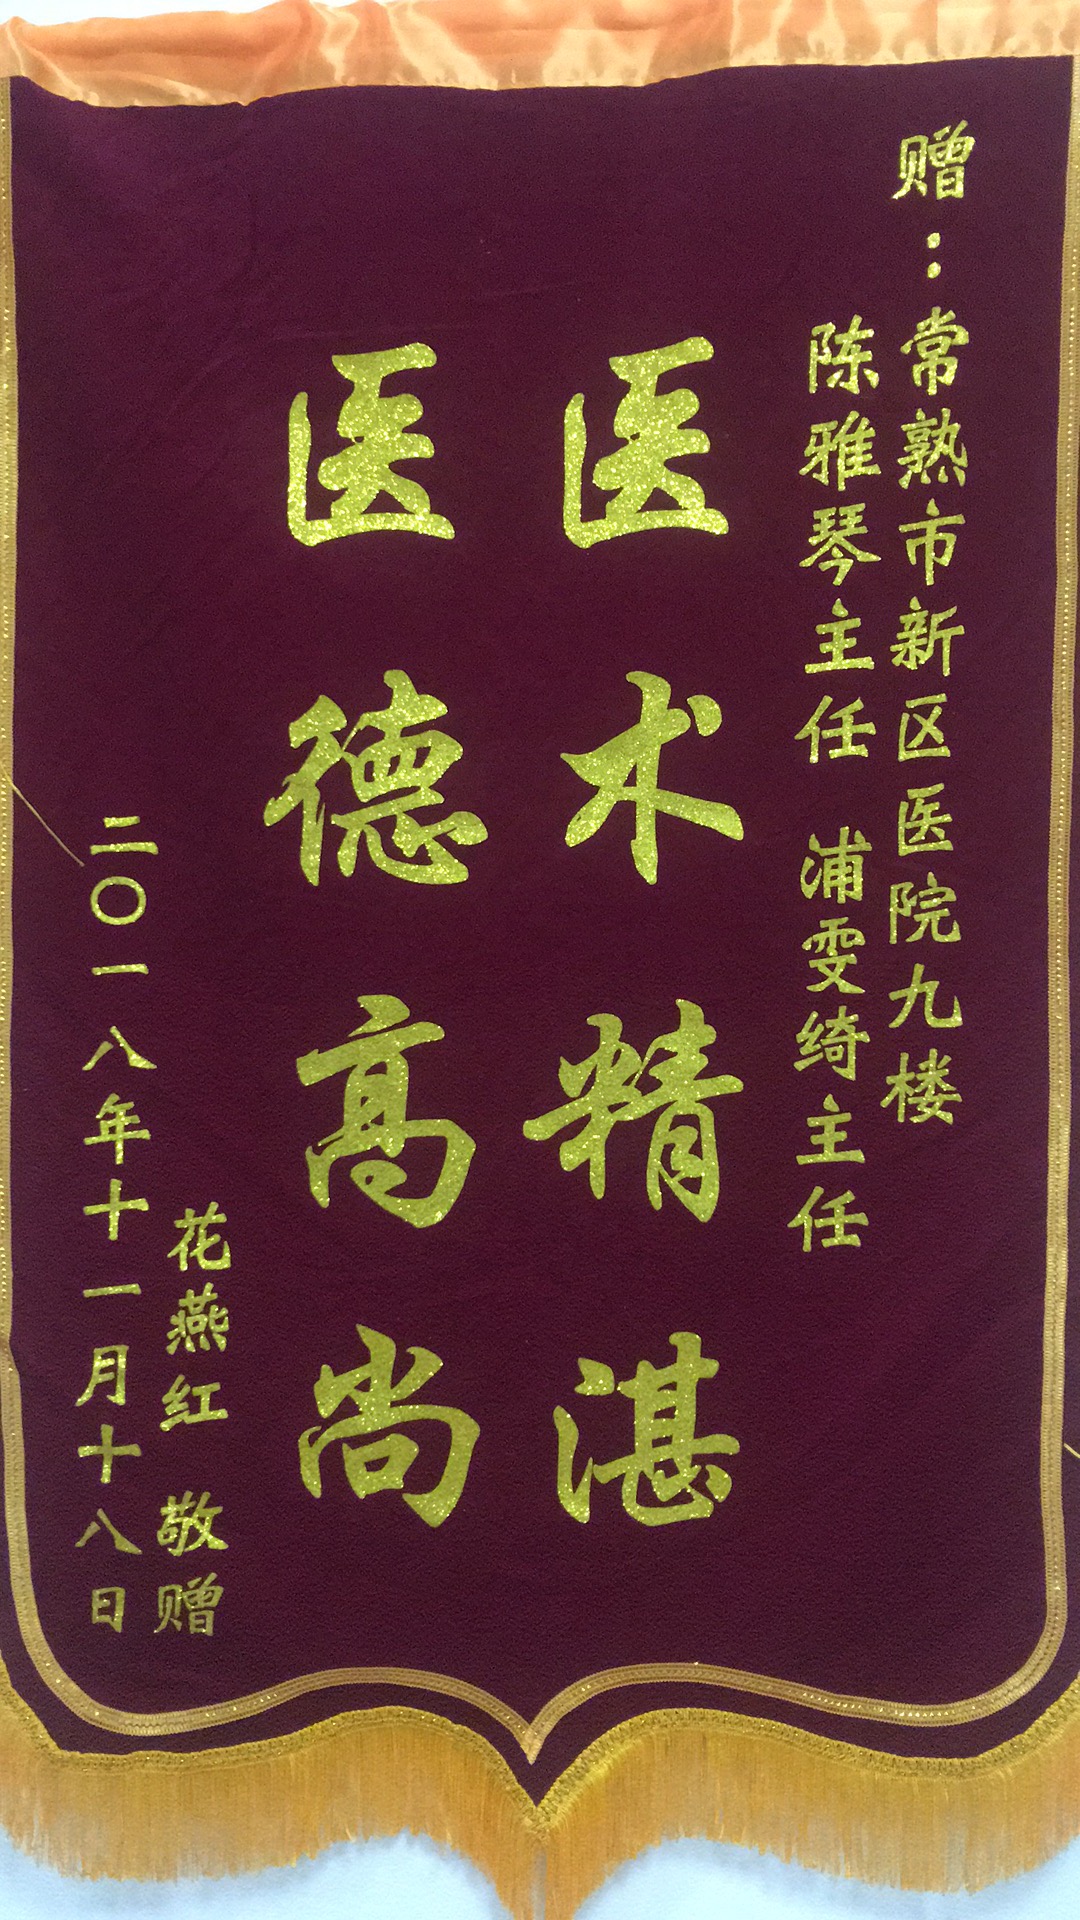 赠：常熟市新区医院九楼
陈雅琴主任 浦雯绮主任
医术精湛
医德高尚
花燕红 敬赠
二〇一八年十一月十八日